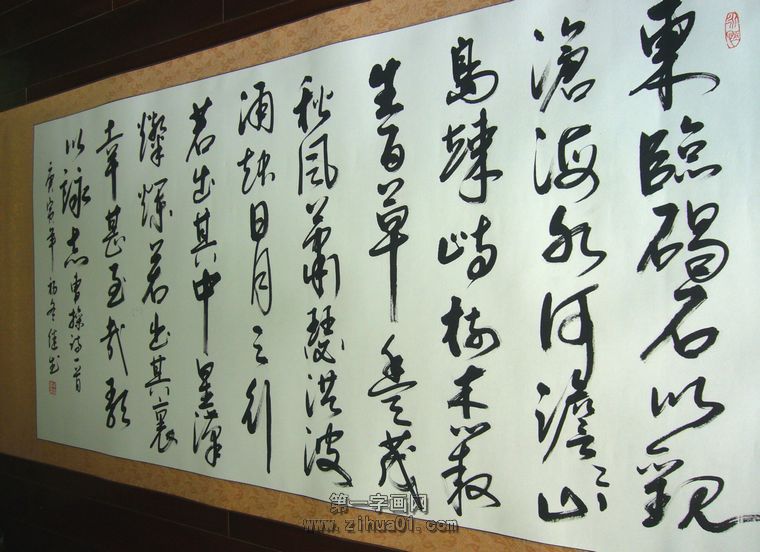 東臨碣石以觀
滄海水何澹々山
島竦峙樹木叢
生百草豊茂
秋風蕭瑟洪波
涌起日月之行
若出其中星漢
燦爛若出其裏
幸甚至哉歌
以詠志曹操詩一首
庚寅年
第一字画网
www.zihua01.com